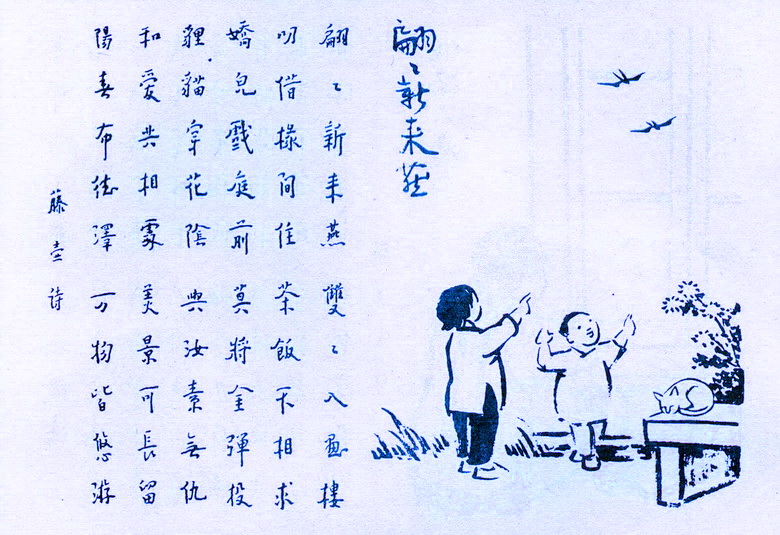 翩〻新来燕
翩〻新来燕雙〻入画樓
叨借椽間住茶飯不相求
嬌兒戲庭前莫將金彈投
貍貓穿花陰與汝素無仇
和爱共相處美景可長留
陽春布德澤万物皆悠游
藤壶诗